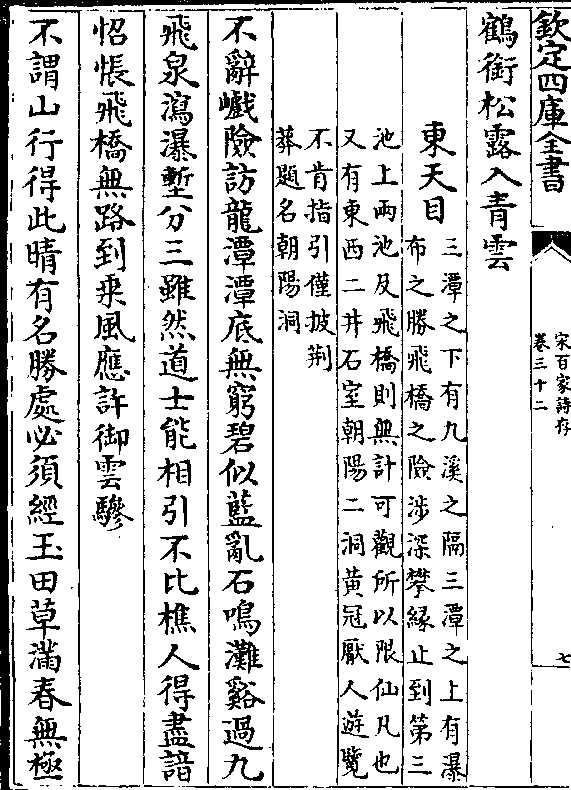 欽定四庫全書
宋百家詩存
卷三十二
七
鶴銜松露入青雲
東天目
三潭之下有九溪之隔三潭之上有瀑
布之勝飛橋之險涉深攀緣止到第三
池上兩池及飛橋則無計可觀所以限仙凡也
又有東西二井石室朝陽二洞黃冠厭人遊覽
不肯指引僅披荆
莽題名朝陽洞
不辭巇險訪龍潭潭底無窮碧似藍亂石鳴灘谿過九
飛泉瀉瀑塹分三雖然道士能相引不比樵人得盡諳
怊悵飛橋無路到乗風應許御雲驂
不謂山行得此晴有名勝處必須經玉田草滿春無極